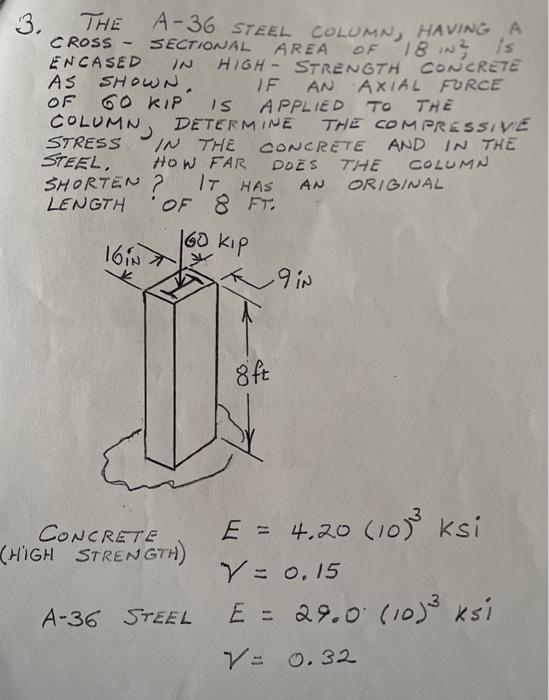 3. THE A-36 STEEL COLUMN, HAVING A
CROSS - SECTIONAL AREA OF 18 IN², IS
ENCASED IN HIGH - STRENGTH CONCRETE
AS SHOWN. IF AN AXIAL FORCE
OF 60 KIP IS APPLIED TO THE
COLUMN, DETERMINE THE COMPRESSIVE
STRESS IN THE CONCRETE AND IN THE
STEEL. HOW FAR DOES THE COLUMN
SHORTEN? IT HAS AN ORIGINAL
LENGTH OF 8 FT.
60 KIP
16IN
9 IN
8ft
CONCRETE E = 4.20 (10)³ ksi
(HIGH STRENGTH)
ν = 0.15
A-36 STEEL E = 29.0 (10)³ ksi
ν = 0.32